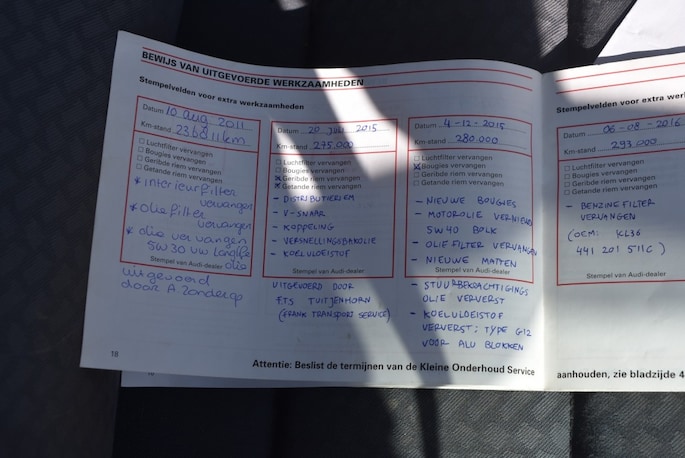 BEWIJS VAN UITGEVOERDE WERKZAAMHEDEN
Stempelvelden voor extra werkzaamheden
Datum 10 aug 2011
Km-stand 236811 km
Luchtfilter vervangen
Bougies vervangen
Geribde riem vervangen
Getande riem vervangen
* interieurfilter
vervangen
* oliefilter
vervangen
* olie vervangen
5W30 VW Longlife
olie
Stempel van Audi-dealer
uitgevoerd
door A. Zonderop
Datum 20 JULI 2015
Km-stand 275.000
Luchtfilter vervangen
Bougies vervangen
x Geribde riem vervangen
x Getande riem vervangen
- DISTRIBUTIERIEM
- V-SNAAR
- KOPPELING
- VERSNELLINGSBAKOLIE
- KOELVLOEISTOF
Stempel van Audi-dealer
UITGEVOERD DOOR
F.T.S TUITJENHORN
(FRANK TRANSPORT SERVICE)
Datum 4-12-2015
Km-stand 280.000
Luchtfilter vervangen
x Bougies vervangen
Geribde riem vervangen
Getande riem vervangen
- NIEUWE BOUGIES
- MOTOROLIE
5W40
- OLIEFILTER VERVANGEN
- NIEUWE MATTEN
Stempel van Audi-dealer
- STUURBEKRACHTIGINGS
OLIE VERVERST
- KOELVLOEISTOF
VERVERST: TYPE G12
VOOR ALU BLOKKEN
18
Attentie: Beslist de termijnen van de Kleine Onderhoud Service
Stempelvelden voor extra
Datum 06-08-2016
Km-stand 293.000
Luchtfilter vervangen
Bougies vervangen
Geribde riem vervangen
Getande riem vervangen
- BENZINE FILTER
VERVANGEN
(OEM: KL36
441 201 511C)
Stempel van Audi-dealer
aanhouden, zie bladzijde 4